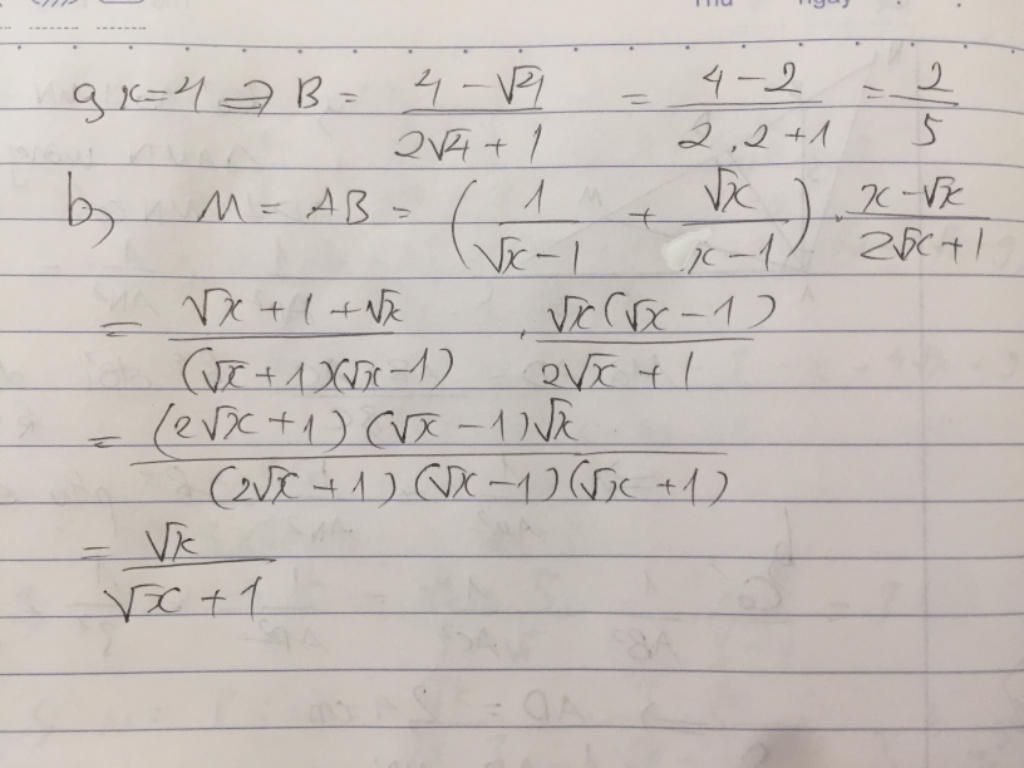 Thứ ngày
a, x=4 => B = (4 - √4)/(2√4 + 1) = (4 - 2)/(2.2+1) = 2/5
b, M = AB = (1/(√x - 1) + √x/(x - 1)) . (x - √x)/(2√x + 1)
= (√x + 1 + √x)/((√x + 1)(√x - 1)) . (√x(√x - 1))/(2√x + 1)
= ((2√x + 1)(√x - 1)√x)/((2√x + 1)(√x - 1)(√x + 1))
= √x/(√x + 1)